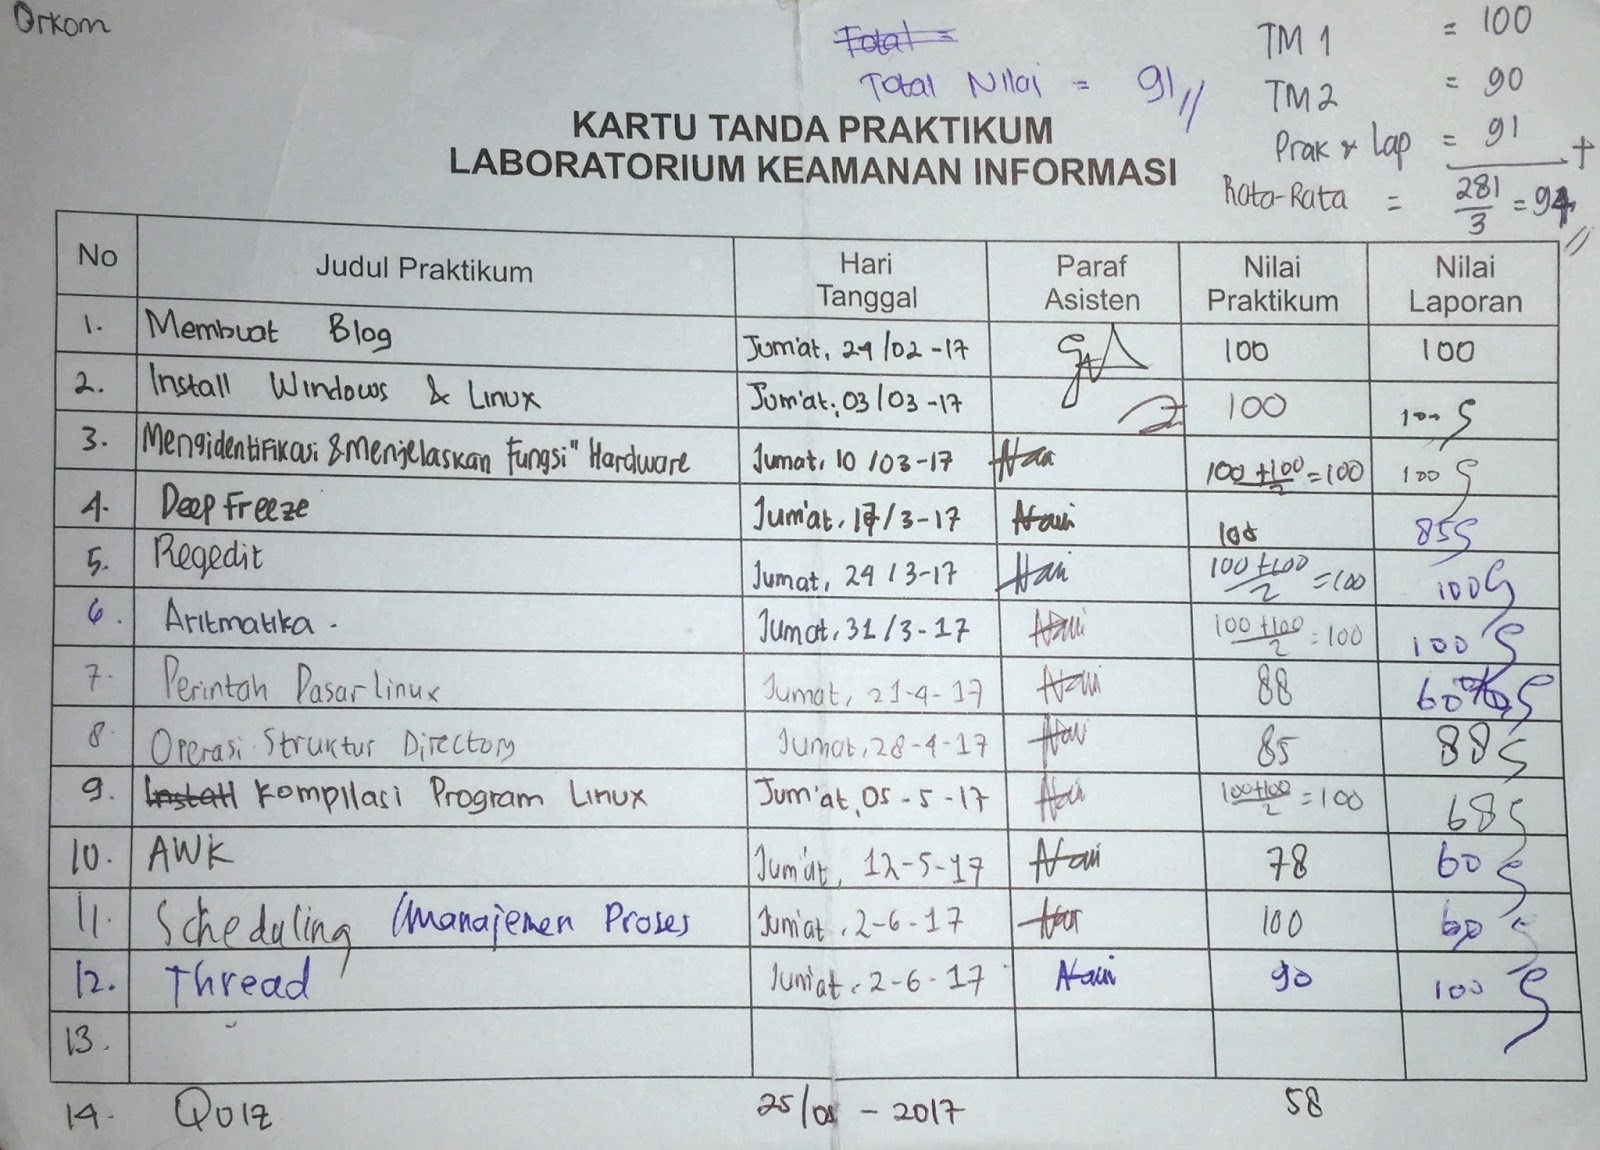 Orkom
Total =
Total Nilai = 91 //
TM 1 = 100
TM 2 = 90
Prak & Lap = 91 +
Rata-Rata = 281/3 = 94 //
KARTU TANDA PRAKTIKUM
LABORATORIUM KEAMANAN INFORMASI
No Judul Praktikum Hari Tanggal Paraf Asisten Nilai Praktikum Nilai Laporan
1. Membuat Blog Jum'at, 24/02-17 100 100
2. Install Windows & Linux Jum'at, 03/03-17 100 100
3. Mengidentifikasi & Menjelaskan Fungsi" Hardware Jumat, 10/03-17 100+100/2=100 100
4. Deep Freeze Jum'at, 17/3-17 100 85
5. Regedit Jumat, 24/3-17 100+100/2=100 100
6. Aritmatika. Jumat, 31/3-17 100+100/2=100 100
7. Perintah Dasar linux Jumat, 21-4-17 88 60
8. Operasi Struktur Directory Jumat, 28-4-17 85 88
9. Install Kompilasi Program Linux Jum'at, 05-5-17 100+100/2=100 68
10. AWK Jum'at, 12-5-17 78 60
11. Scheduling /Manajemen Proses Jum'at, 2-6-17 100 60
12. Thread Jum'at, 2-6-17 90 100
13.
14. Quiz 25/05-2017 58